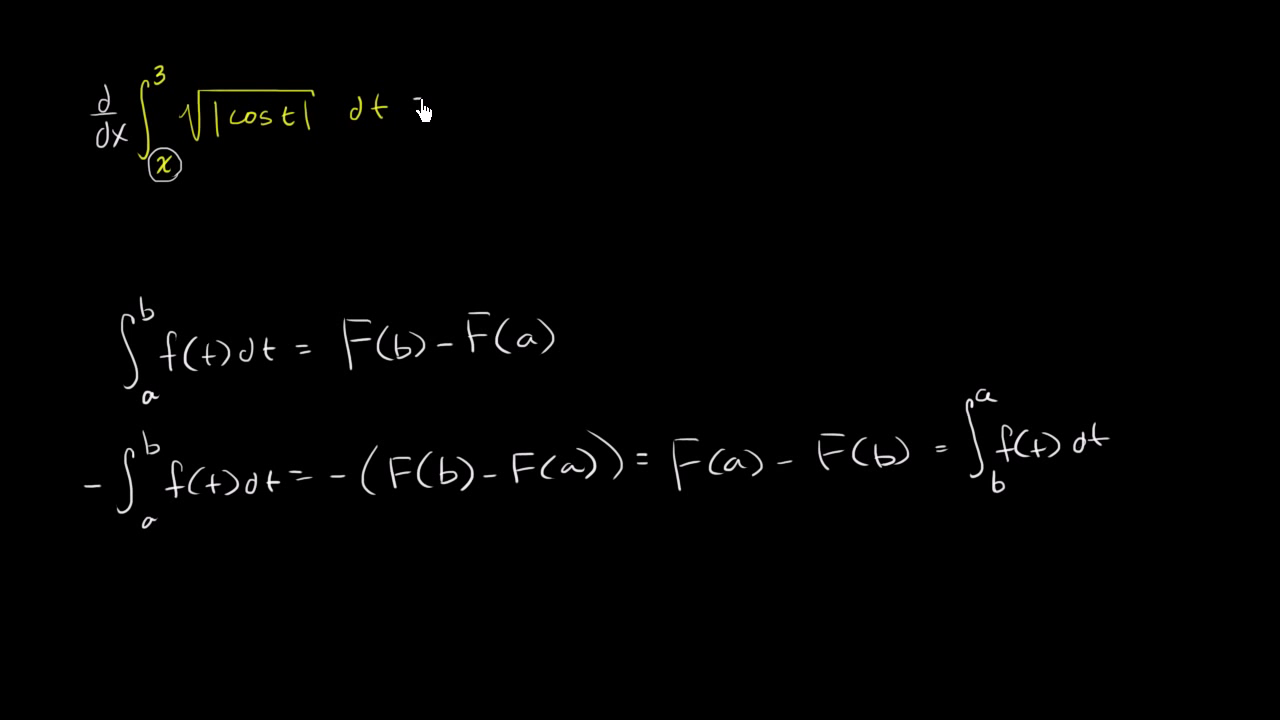 d/dx ∫_x^3 √|cos t| dt =
∫_a^b f(t)dt = F(b) - F(a)
-∫_a^b f(t)dt = -(F(b) - F(a)) = F(a) - F(b) = ∫_b^a f(t) dt